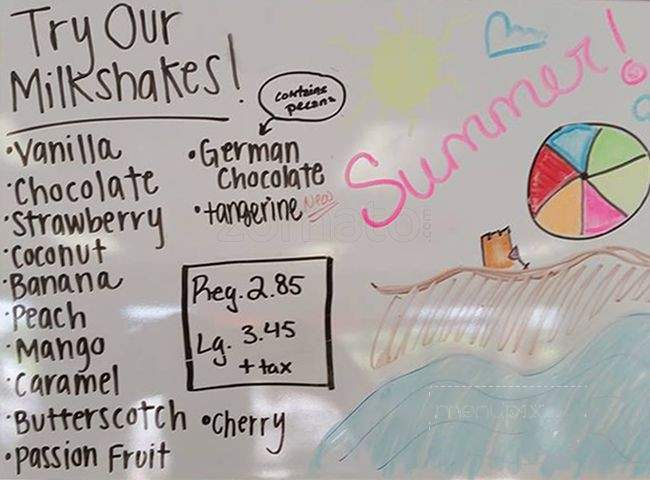 Try Our
Milkshakes!
contains
pecans
•Vanilla
•Chocolate
•Strawberry
•Coconut
•Banana
•Peach
•Mango
•Caramel
•Butterscotch
•Passion Fruit
•German
Chocolate
•tangerine New
Reg. 2.85
Lg. 3.45
+ tax
•Cherry
Summer!
zomato.com
menupix